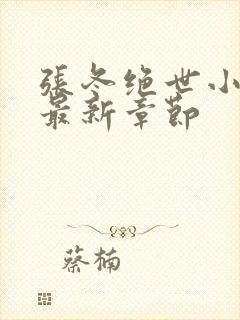 張冬绝世小
最新章節
蔡楠